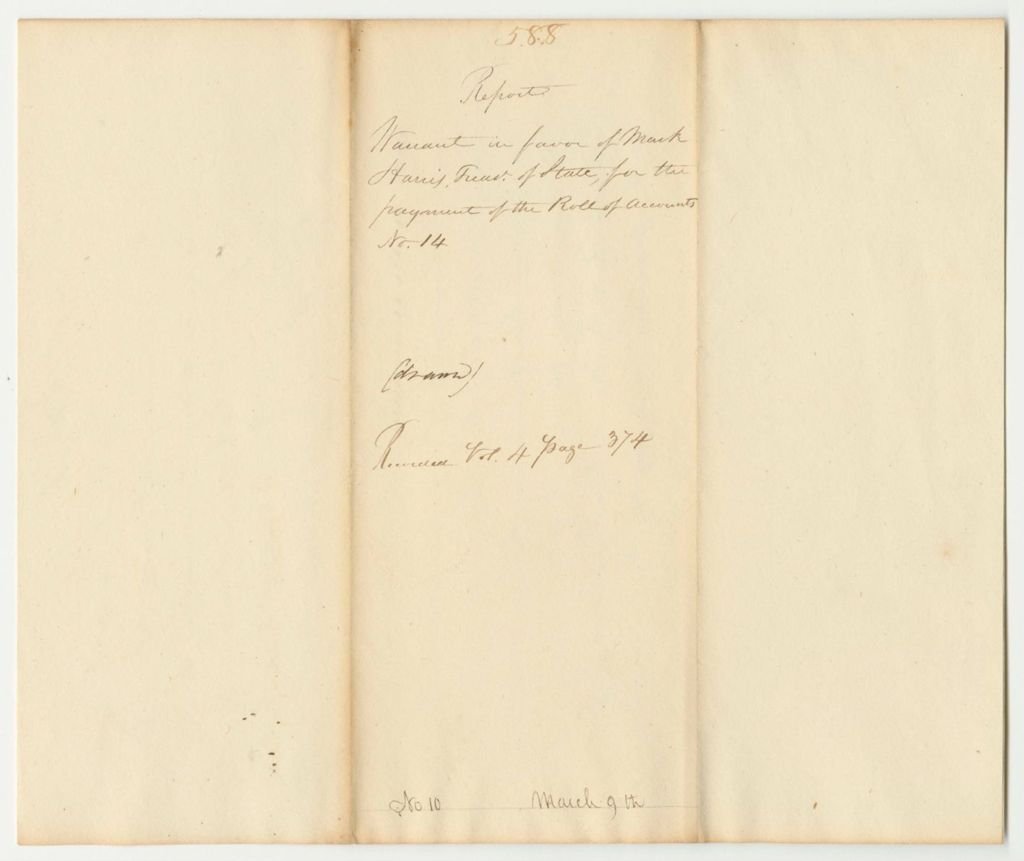 588
Report
Warrant in favor of Mark
Harris, Treasr. of State, for the
payment of the Roll of Accounts
No. 14
(drawn)
Recorded Vol. 4 page 374
No 10 March 9th